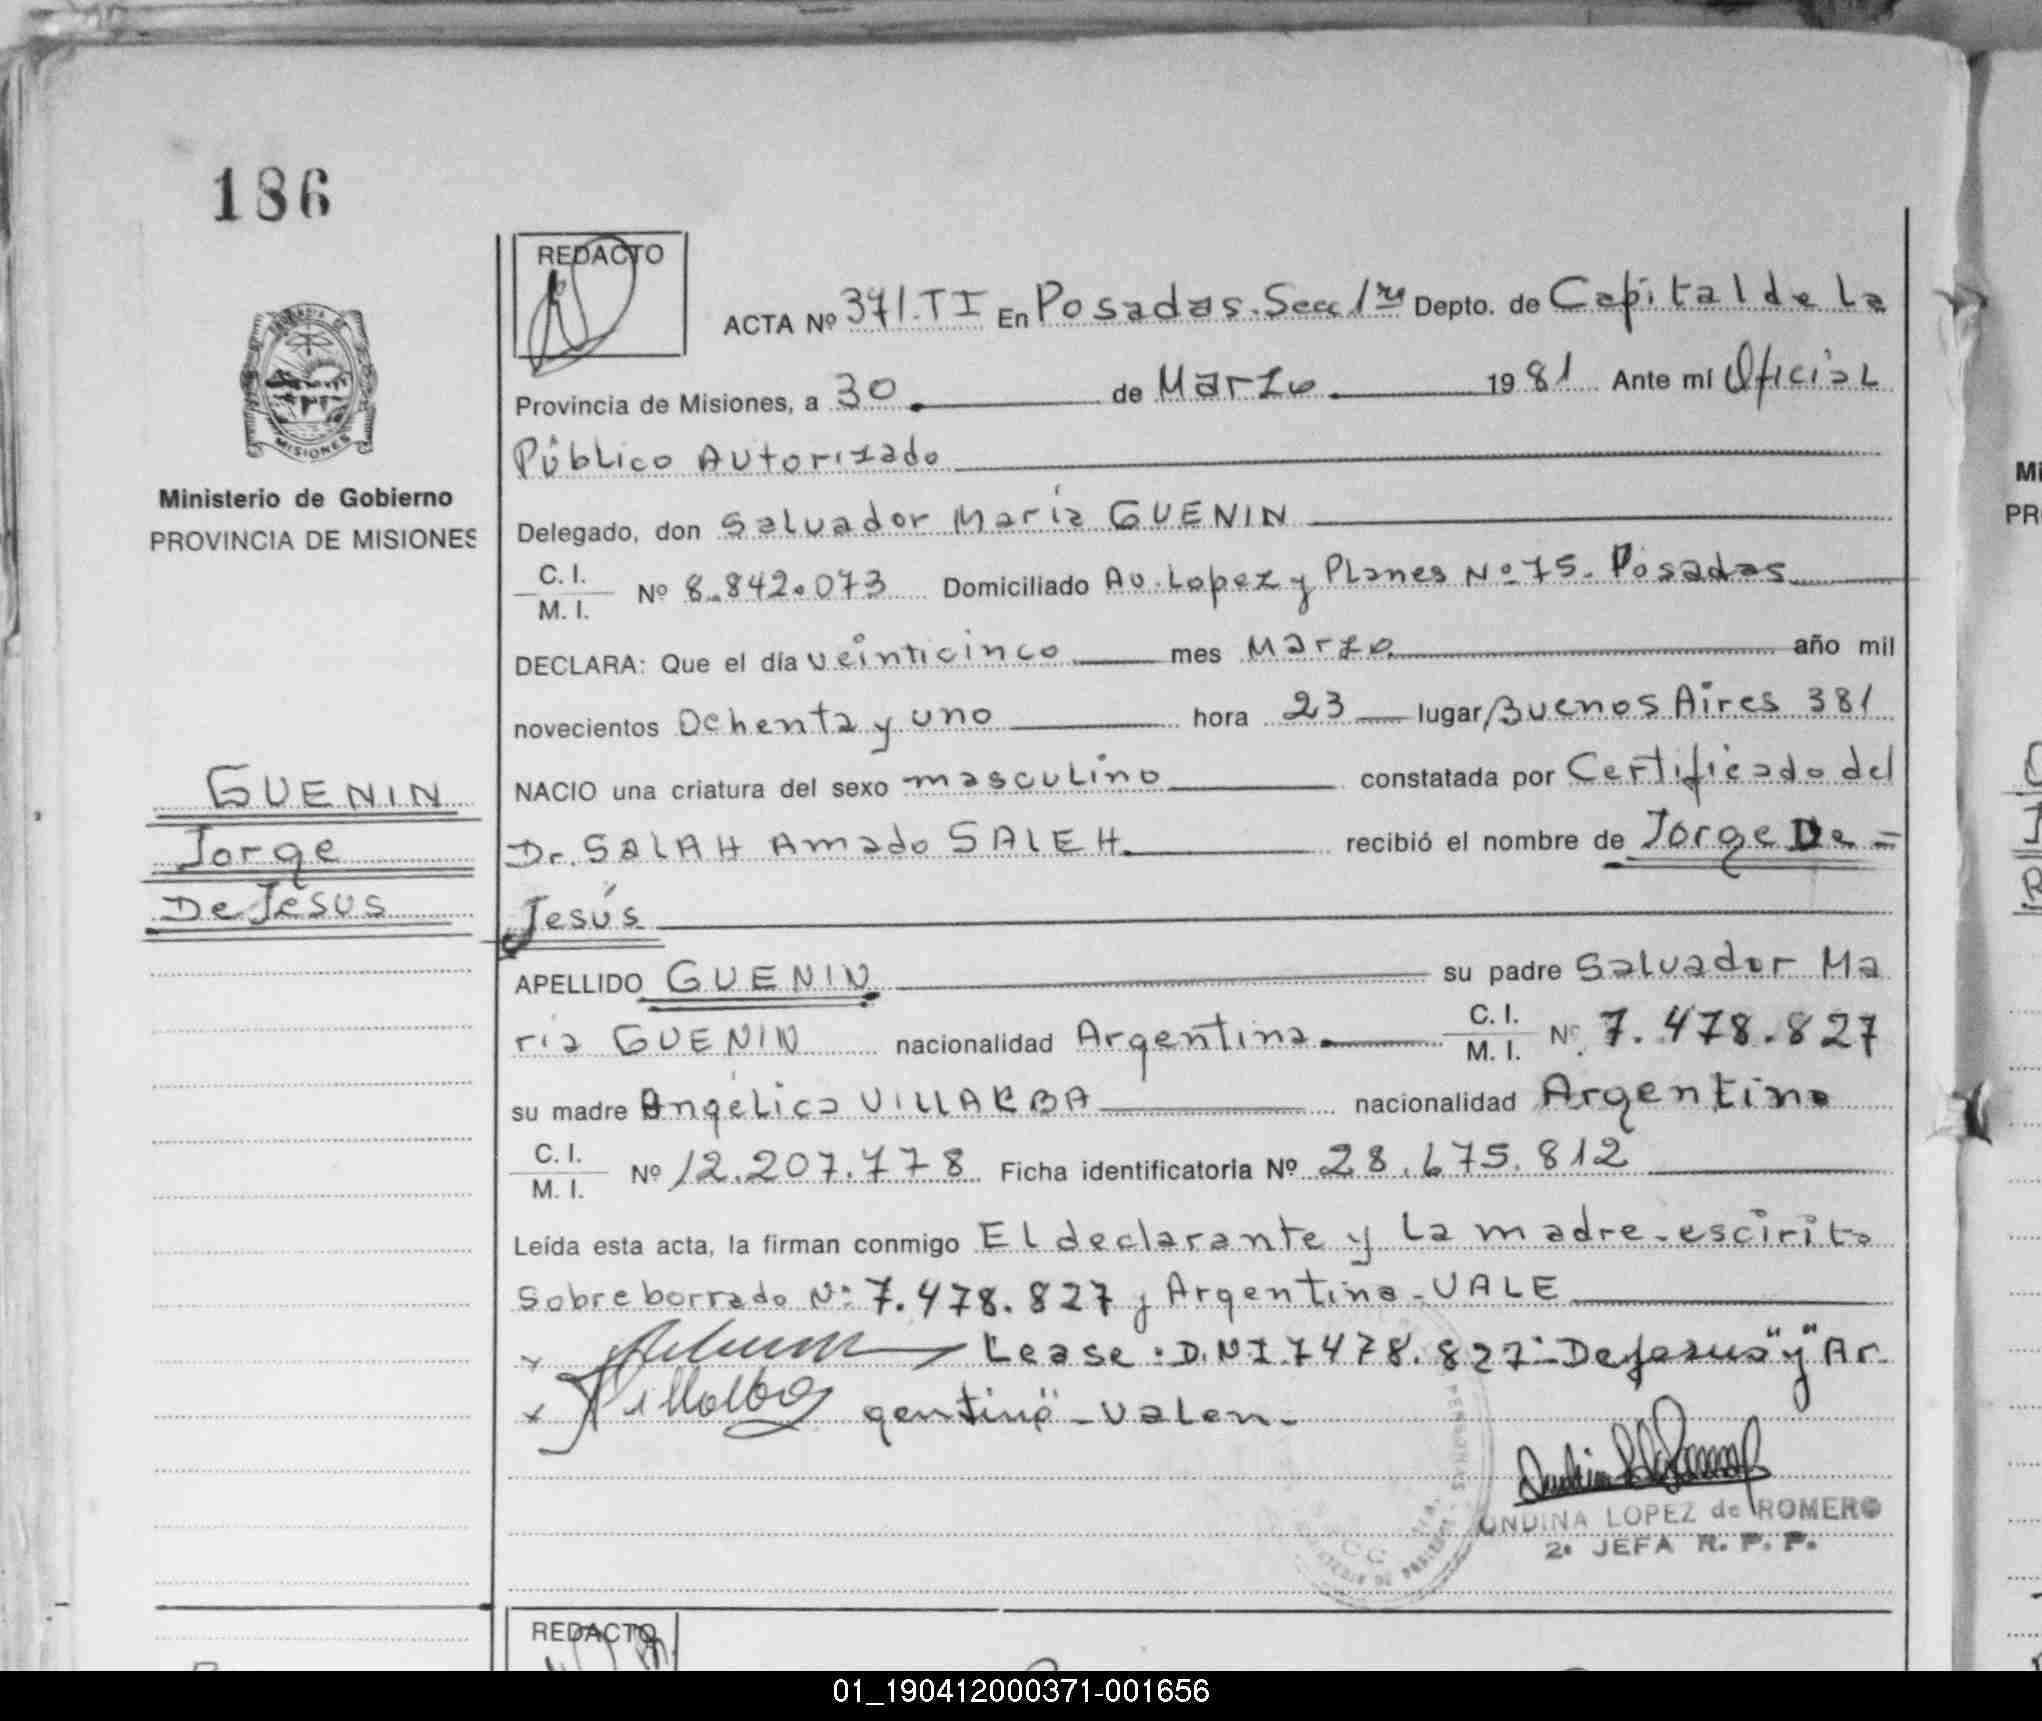 186
REDACTO
ACTA Nº 371.TI En Posadas.Secc 1ra Depto. de Capital de La
Provincia de Misiones, a 30 de Marzo 1981 Ante mí Oficial
Público Autorizado
MISIONES
Ministerio de Gobierno
PROVINCIA DE MISIONES
Delegado, don Salvador María GUENIN
C. I.
M. I.
Nº 8.842.073 Domiciliado Av. Lopez y Planes Nº 75. Posadas
DECLARA: Que el día veinticinco mes Marzo año mil
novecientos Ochenta y uno hora 23 lugar Buenos Aires 381
NACIO una criatura del sexo masculino constatada por Certificado del
Dr. SALAH Amado SALEH recibió el nombre de Jorge De =
Jesús
GUENIN
Jorge
De Jesus
APELLIDO GUENIN su padre Salvador Ma
ría GUENIN nacionalidad Argentina C. I.
M. I. Nº 7.478.827
su madre Angélica VILLALBA nacionalidad Argentina
C. I.
M. I.
Nº 12.207.778 Ficha identificatoria Nº 28.675.812
Leída esta acta, la firman conmigo El declarante y La madre-escirito
Sobre borrado Nº 7.478.827 y Argentina-VALE
x Lease: D.N.I 7478.827-"De Jesus" y "Ar-
x Villalba gentina"-Valen-
UNDINA LOPEZ de ROMERO
2ª JEFA R. P. P.
REDACTO
Mi
PR
01_190412000371-001656